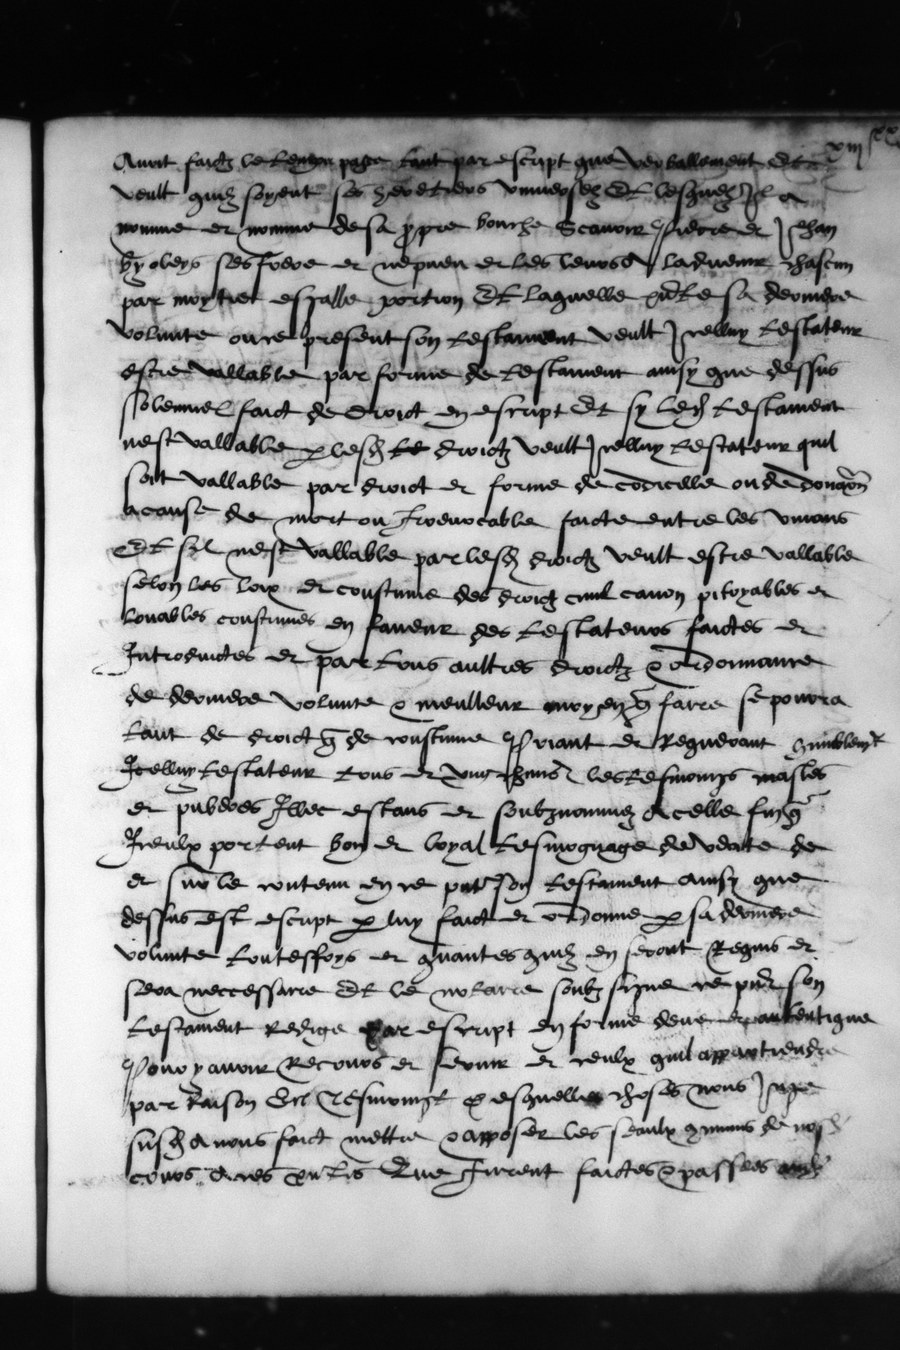 xiij xx
Avoit faictz le temps passe tant par escript que verballement Et
veult quilz soyent ses heretiers universelz Et lesquelz Il a
nomme et nomme de sa ppre bouche Scavoir Pierre et Jehan
ses frere et nepveu et les leurs a ladvenir chascun
par moytier esgalle portion Et laquelle sa derniere
volunte ou ce present son testament veult Icelluy testateur
estre vallable par forme de testament ainsy que dessus
solennel faict de droict en escript Et sy led testament
nest vallable p lesd droictz veult Icelluy testateur quil
soit vallable par droict et forme de codicelle ou de donaon
a cause de mort ou Irrevocable faicte entre les vivans
Et sil nest vallable par lesd droictz veult estre vallable
selon les loix et coustume des droictz civil canon pitoyables et
louables coustumes en faveur des testateurs faictes et
Introduictes et par tous aultres droictz & ordonnance
de derniere volunte & meulleur moyen q faire se pourra
tant de droict q de coustume Priant et Requerant humblemt
Icelluy testateur tous et ung chascun les tesmoings masles
et puberes Illec estans et soubznommez A celle fin q
Iceulx portent bon et loyal tesmognage de verite de
et sur le contenu en ce pnt son testament ainsy que
dessus est escript p luy faict et ordonne p sa derniere
volunte touteffoys et quantes quilz en seront Requis et
sera neccessaire Et le notaire soubz signe ce pnt son
testament Redige par escript en forme deue et autentique
Pour y avoir Recours et servir et ceulx quil appartiendra
par Raison En tesmoingt & esquelles choses nous Juge
susd Avons faict mettre & apposer les seaulx comuns de nosd
cours A ces pntes Que furent faictes & passees